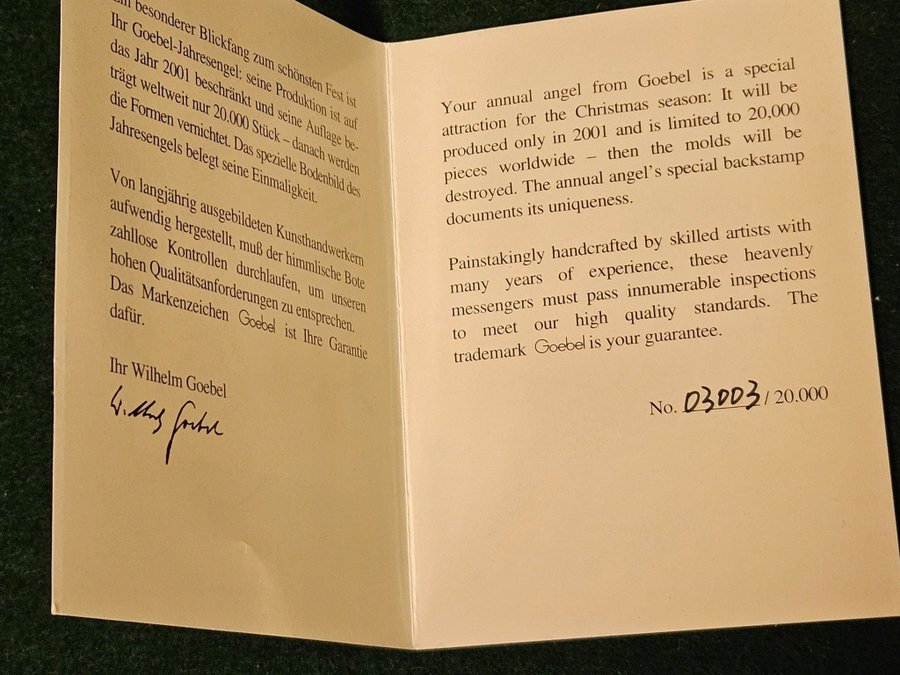 Ein besonderer Blickfang zum schönsten Fest ist
Ihr Goebel-Jahresengel: seine Produktion ist auf
das Jahr 2001 beschränkt und seine Auflage be-
trägt weltweit nur 20.000 Stück – danach werden
die Formen vernichtet. Das spezielle Bodenbild des
Jahresengels belegt seine Einmaligkeit.
Von langjährig ausgebildeten Kunsthandwerkern
aufwendig hergestellt, muß der himmlische Bote
zahllose Kontrollen durchlaufen, um unseren
hohen Qualitätsanforderungen zu entsprechen.
Das Markenzeichen Goebel ist Ihre Garantie
dafür.
Ihr Wilhelm Goebel
W. Goebel
Your annual angel from Goebel is a special
attraction for the Christmas season: It will be
produced only in 2001 and is limited to 20,000
pieces worldwide – then the molds will be
destroyed. The annual angel's special backstamp
documents its uniqueness.
Painstakingly handcrafted by skilled artists with
many years of experience, these heavenly
messengers must pass innumerable inspections
to meet our high quality standards. The
trademark Goebel is your guarantee.
No. 03003 / 20.000